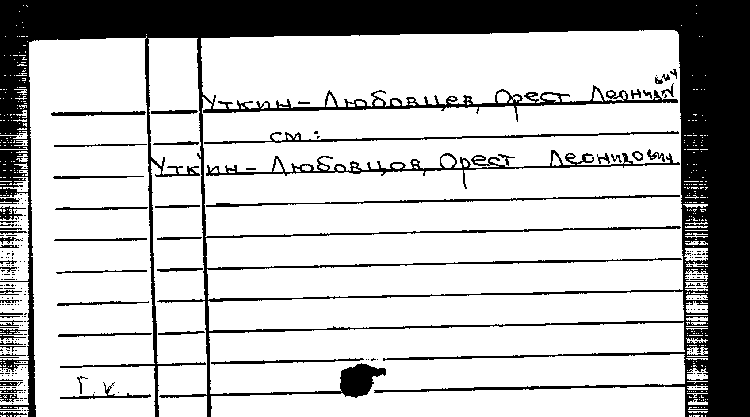 Уткин-Любовцев, Орест Леонидович
см.:
Уткин-Любовцов, Орест Леонидович
Г.К.